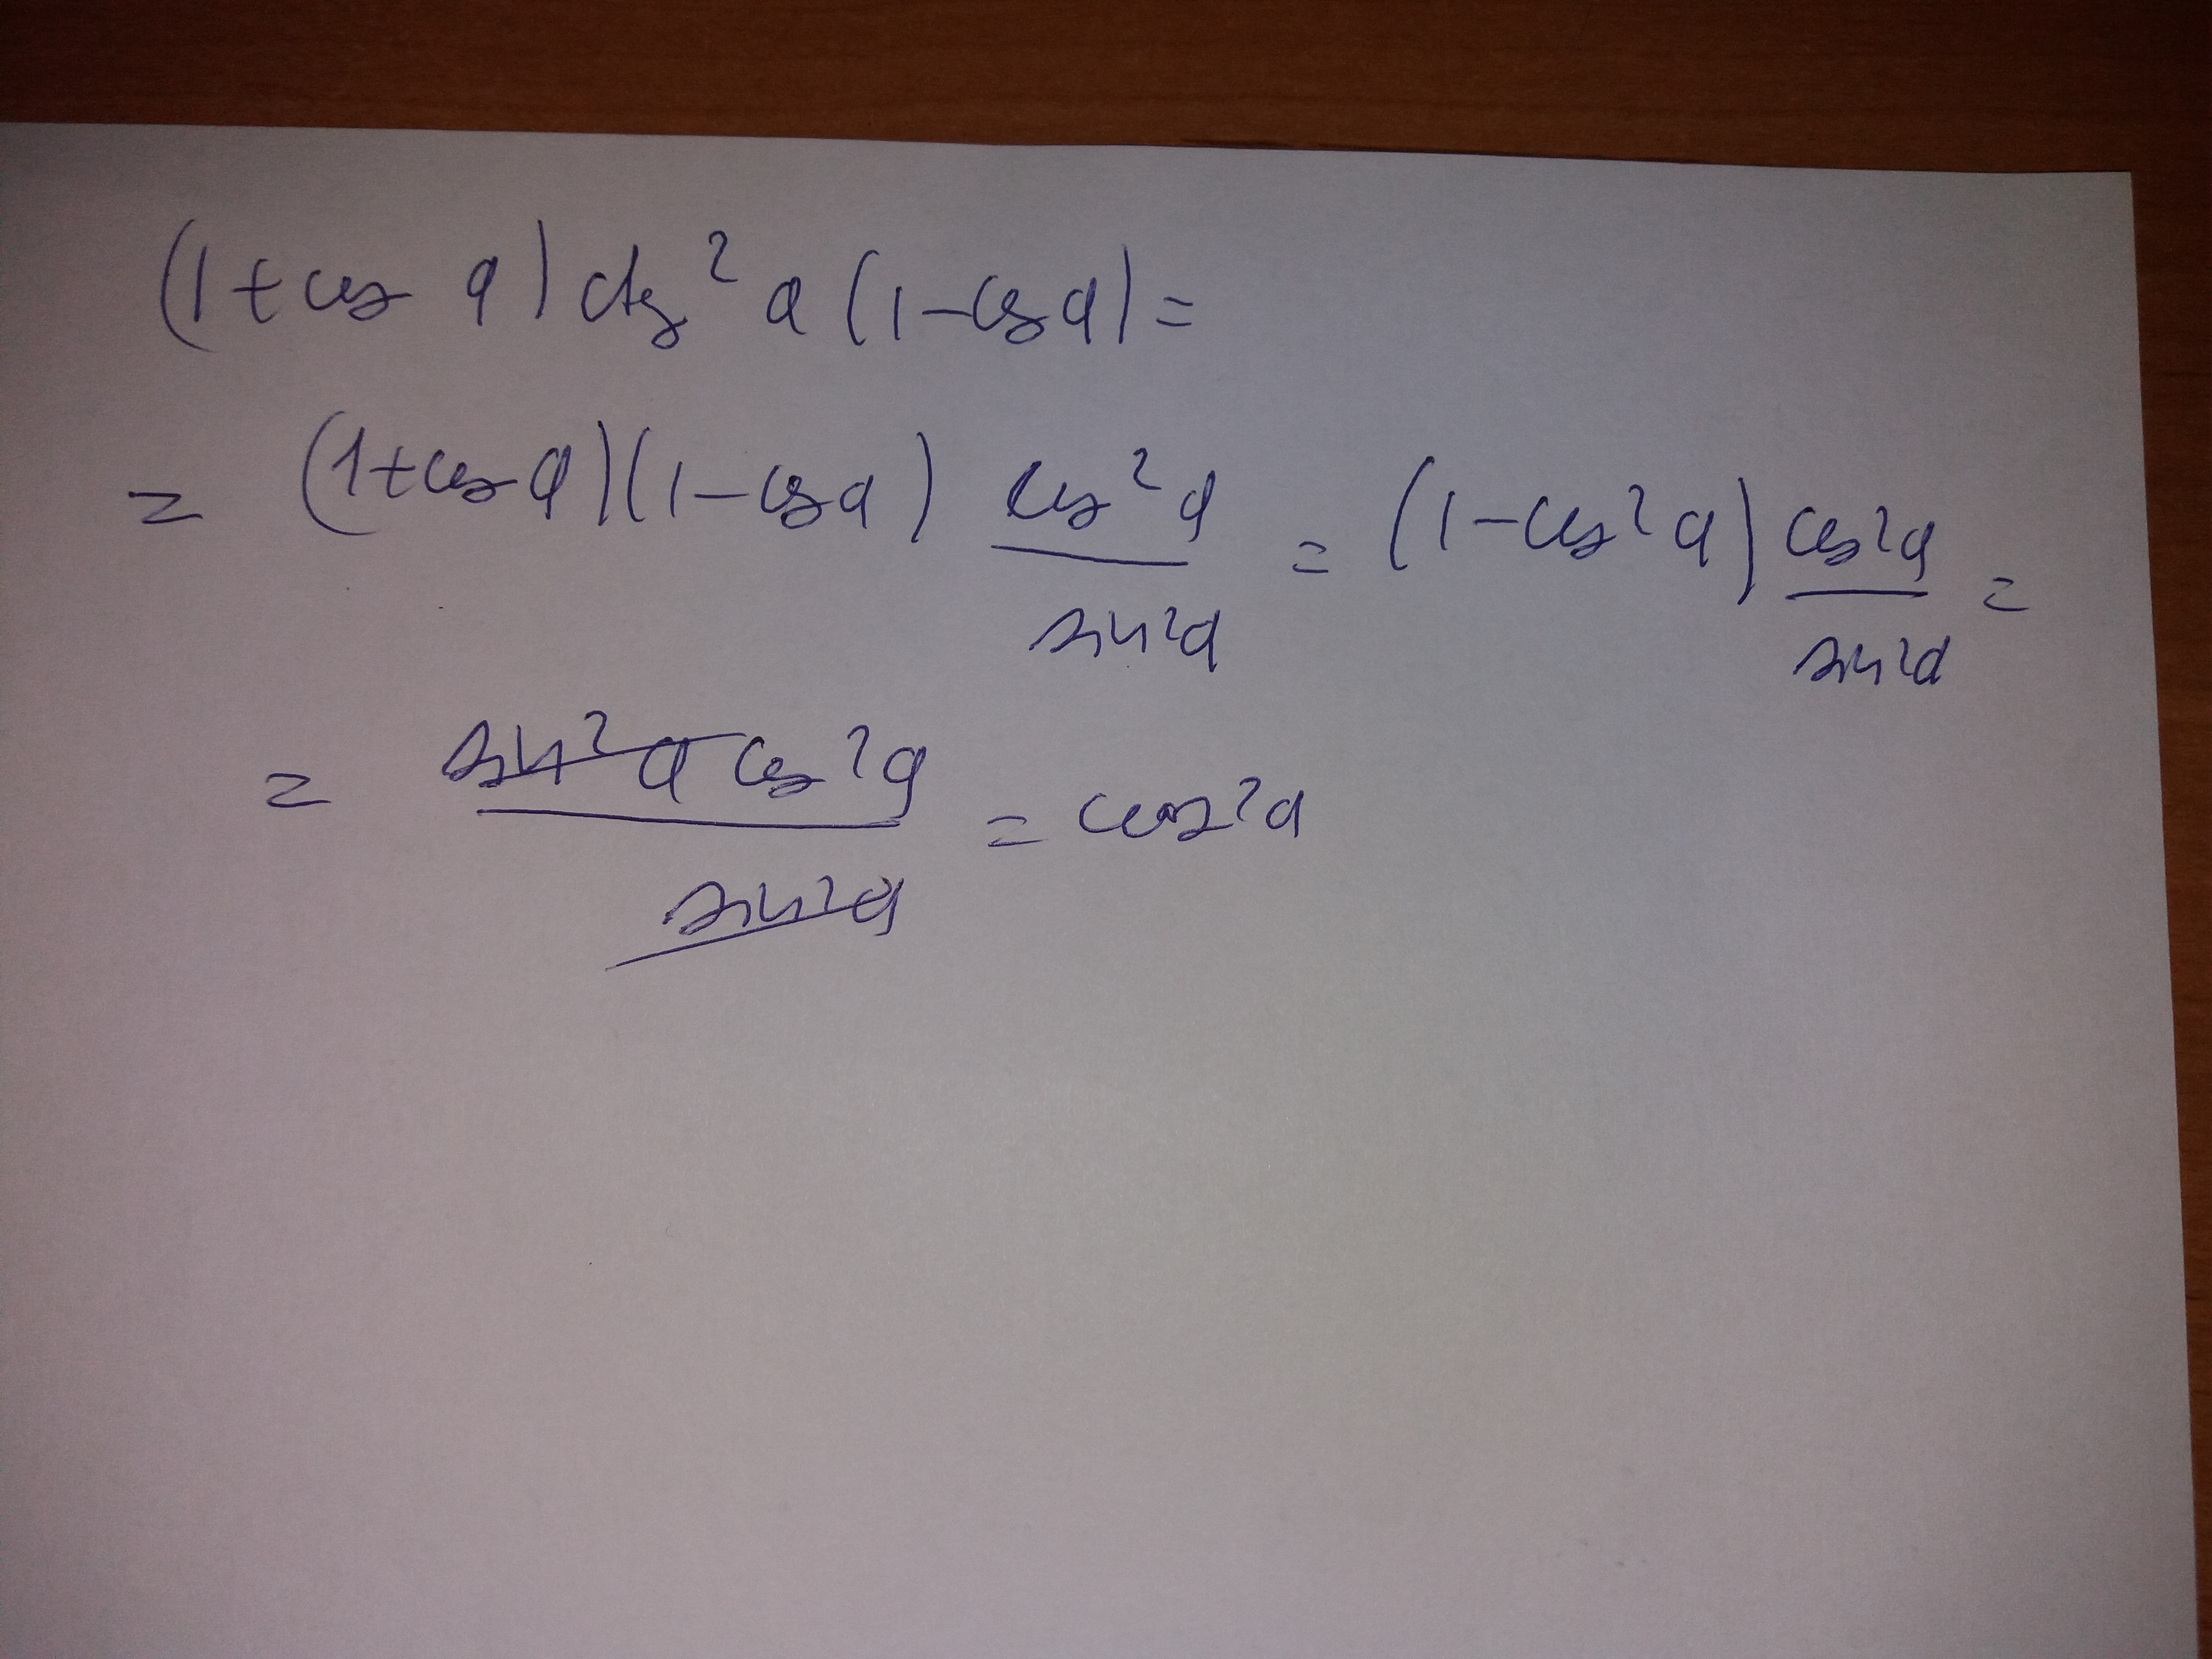 (1+cos a) ctg² a (1-cos a) =
= (1+cos a)(1-cos a) cos² a / sin² a = (1-cos² a) cos² a / sin² a =
= sin² a cos² a / sin² a = cos² a